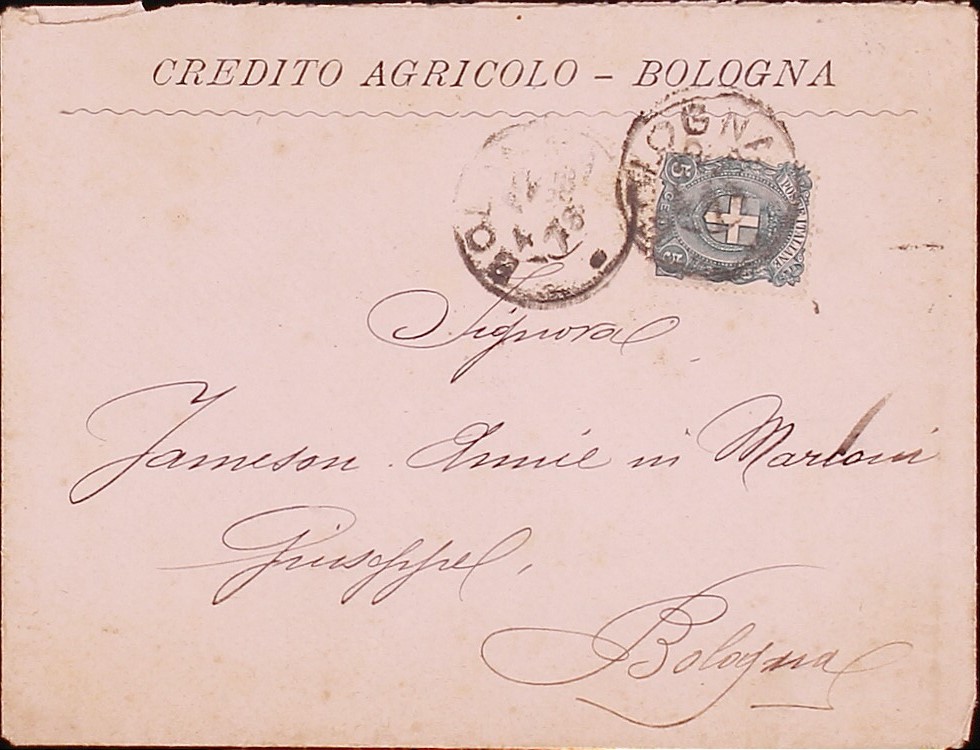 CREDITO AGRICOLO – BOLOGNA
BOLOGNA
5
POSTE ITALIANE
5
Signora
Jameson Annie in Marconi
Giuseppe,
Bologna